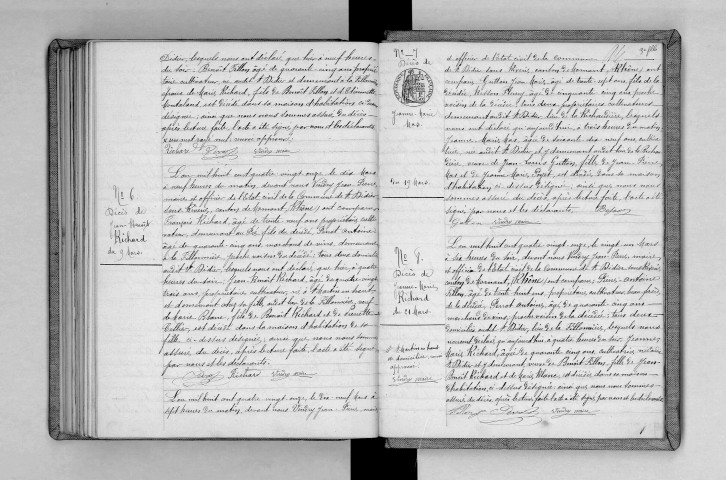 Didier, lesquels nous ont déclaré, que hier à neuf heures
du soir, Benoît Pillon, âgé de quarante cinq ans proprié
taire cultivateur, né audit St Didier et demeurant à la Pillonnière
époux de Marie Richard, fils de Benoît Pillon et d'Etiennette
est décédé dans sa maison d'habitation ci-dessus
désignée, ainsi que nous nous sommes assuré du décès
après lecture faite, l'acte a été signé par nous et les déclarants
Richard Pinot Vindry maire
No 6
Décès de
Jean Benoît
Richard
du 9 Mars.
L'an mil huit cent quatre vingt onze le dix Mars
à neuf heures du matin, devant nous Vindry Jean Pierre
maire et officier de l'Etat civil de la Commune de St Didier
sous Riverie, canton de Mornant, (Rhône) ont comparu
François Richard, âgé de trente neuf ans propriétaire culti
vateur, demeurant au fils du décédé, Pinot Antoine
âgé de quarante cinq ans, marchand de vins, demeurant
à la Pillonnière, proche voisin du décédé; tous deux domiciliés
audit St Didier, lesquels nous ont déclaré, que hier, à quatre
heures du soir, Jean Benoît Richard, âgé de quatre vingt
trois ans, propriétaire cultivateur, né à St Martin en haut
et demeurant chez sa fille audit lieu de la Pillonnière, veuf
de Marie Blanc, fils de Benoît Richard et de Pierrette
Collier, est décédé dans la maison d'habitation de sa
fille, ci-dessus désignée, ainsi que nous nous som
assuré du décès, après lecture faite, l'acte a été signé
par nous et les déclarants.
Pinot Richard Vindry maire
L'an mil huit cent quatre vingt onze le dix-neuf Mars à
sept heures du matin, devant nous Vindry Jean-Pierre maire
No 7
Décès de
Jeanne Marie
du 19 Mars.
et officier de l'Etat civil de la commune
de St Didier sous Riverie, canton de Mornant, (Rhône) ont
comparu Guillon Jean Marie, âgé de trente sept ans, fils de la
décédée, âgé de cinquante cinq ans proche
voisin de la décédée, tous deux propriétaires cultivateurs
demeurant audit St Didier, lieu de la Richardière, lesquels
nous ont déclaré qu'aujourd'hui à trois heures du matin,
Jeanne Marie âgée de soixante dix neuf ans, cultiva
trice, née audit St Didier et y demeurant audit lieu de la Richar
dière, veuve de Jean Louis Guillon, fille de Jean Pierre
et de Jeanne Marie est décédée dans sa maison
d'habitation ci-dessus désignée, ainsi que nous nous sommes
assuré du décès, après lecture faite, l'acte a été
signé par nous et les déclarants.
Vindry maire
No 8.
Décès de
Jeanne Marie
Richard
du 21 Mars.
Vindry maire
L'an mil huit cent quatre vingt onze le vingt un Mars
à six heures du soir, devant nous Vindry Jean Pierre, maire
et officier de l'Etat civil de la commune de St Didier sous Riverie
canton de Mornant, (Rhône) ont comparu, Pierre Antoine
Pillon, âgé de trente huit ans, propriétaire cultivateur, beau frère
de la décédée, Pinot Antoine, âgé de quarante cinq ans
marchand de vins, proche voisin de la décédée; tous deux
domiciliés audit St Didier, lieu de la Pillonnière, lesquels nous
ont déclaré qu'aujourd'hui, à quatre heures du soir, Jeanne
Marie Richard, âgée de quarante cinq ans, cultivatrice,
St Didier et y demeurant, veuve de Benoît Pillon, fille de Jean
Benoît Richard et de Marie Blanc, est décédée dans sa maison
d'habitation, ci-dessus désignée, ainsi que nous nous sommes
assuré du décès, après lecture faite, l'acte a été signé par nous et les déclarants
Pillon Pinot Vindry maire